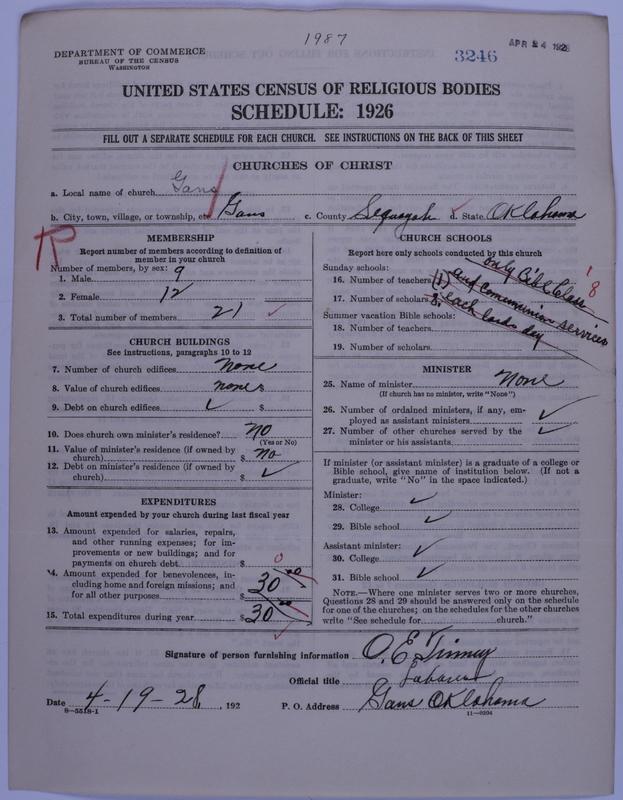 1987
DEPARTMENT OF COMMERCE
BUREAU OF THE CENSUS
WASHINGTON
3246
APR 24 192
UNITED STATES CENSUS OF RELIGIOUS BODIES
SCHEDULE: 1926
FILL OUT A SEPARATE SCHEDULE FOR EACH CHURCH. SEE INSTRUCTIONS ON THE BACK OF THIS SHEET
CHURCHES OF CHRIST
a. Local name of church Gans
b. City, town, village, or township, etc Gans c. County Sequoyah d. State Oklahoma
R
MEMBERSHIP
Report number of members according to definition of
member in your church
Number of members, by sex:
1. Male 9
2. Female 12
3. Total number of members 21
CHURCH BUILDINGS
See instructions, paragraphs 10 to 12
7. Number of church edifices none
8. Value of church edifices none $
9. Debt on church edifices ✓ $
10. Does church own minister's residence? no
(Yes or No)
11. Value of minister's residence (if owned by
church) $ no
12. Debt on minister's residence (if owned by
church) $ ✓
EXPENDITURES
Amount expended by your church during last fiscal year
13. Amount expended for salaries, repairs,
and other running expenses; for im-
provements or new buildings; and for
payments on church debt $ 0
14. Amount expended for benevolences, in-
cluding home and foreign missions; and
for all other purposes $ 30 00
15. Total expenditures during year $ 30 00
CHURCH SCHOOLS
Report here only schools conducted by this church
Sunday schools:
16. Number of teachers (1) 1
17. Number of scholars 8 8
only Bible Class
and communion services
each lords day
Summer vacation Bible schools:
18. Number of teachers
19. Number of scholars
MINISTER
25. Name of minister None
(If church has no minister, write "None")
26. Number of ordained ministers, if any, em-
ployed as assistant ministers ✓
27. Number of other churches served by the
minister or his assistants ✓
If minister (or assistant minister) is a graduate of a college or
Bible school, give name of institution below. (If not a
graduate, write "No" in the space indicated.)
Minister:
28. College ✓
29. Bible school ✓
Assistant minister:
30. College ✓
31. Bible school ✓
NOTE.—Where one minister serves two or more churches,
Questions 28 and 29 should be answered only on the schedule
for one of the churches; on the schedules for the other churches
write "See schedule for church."
Signature of person furnishing information O. E. Tinney
Official title
Date 4-19-28, 192 P. O. Address Gans Oklahoma
8-5518-1
11-9204